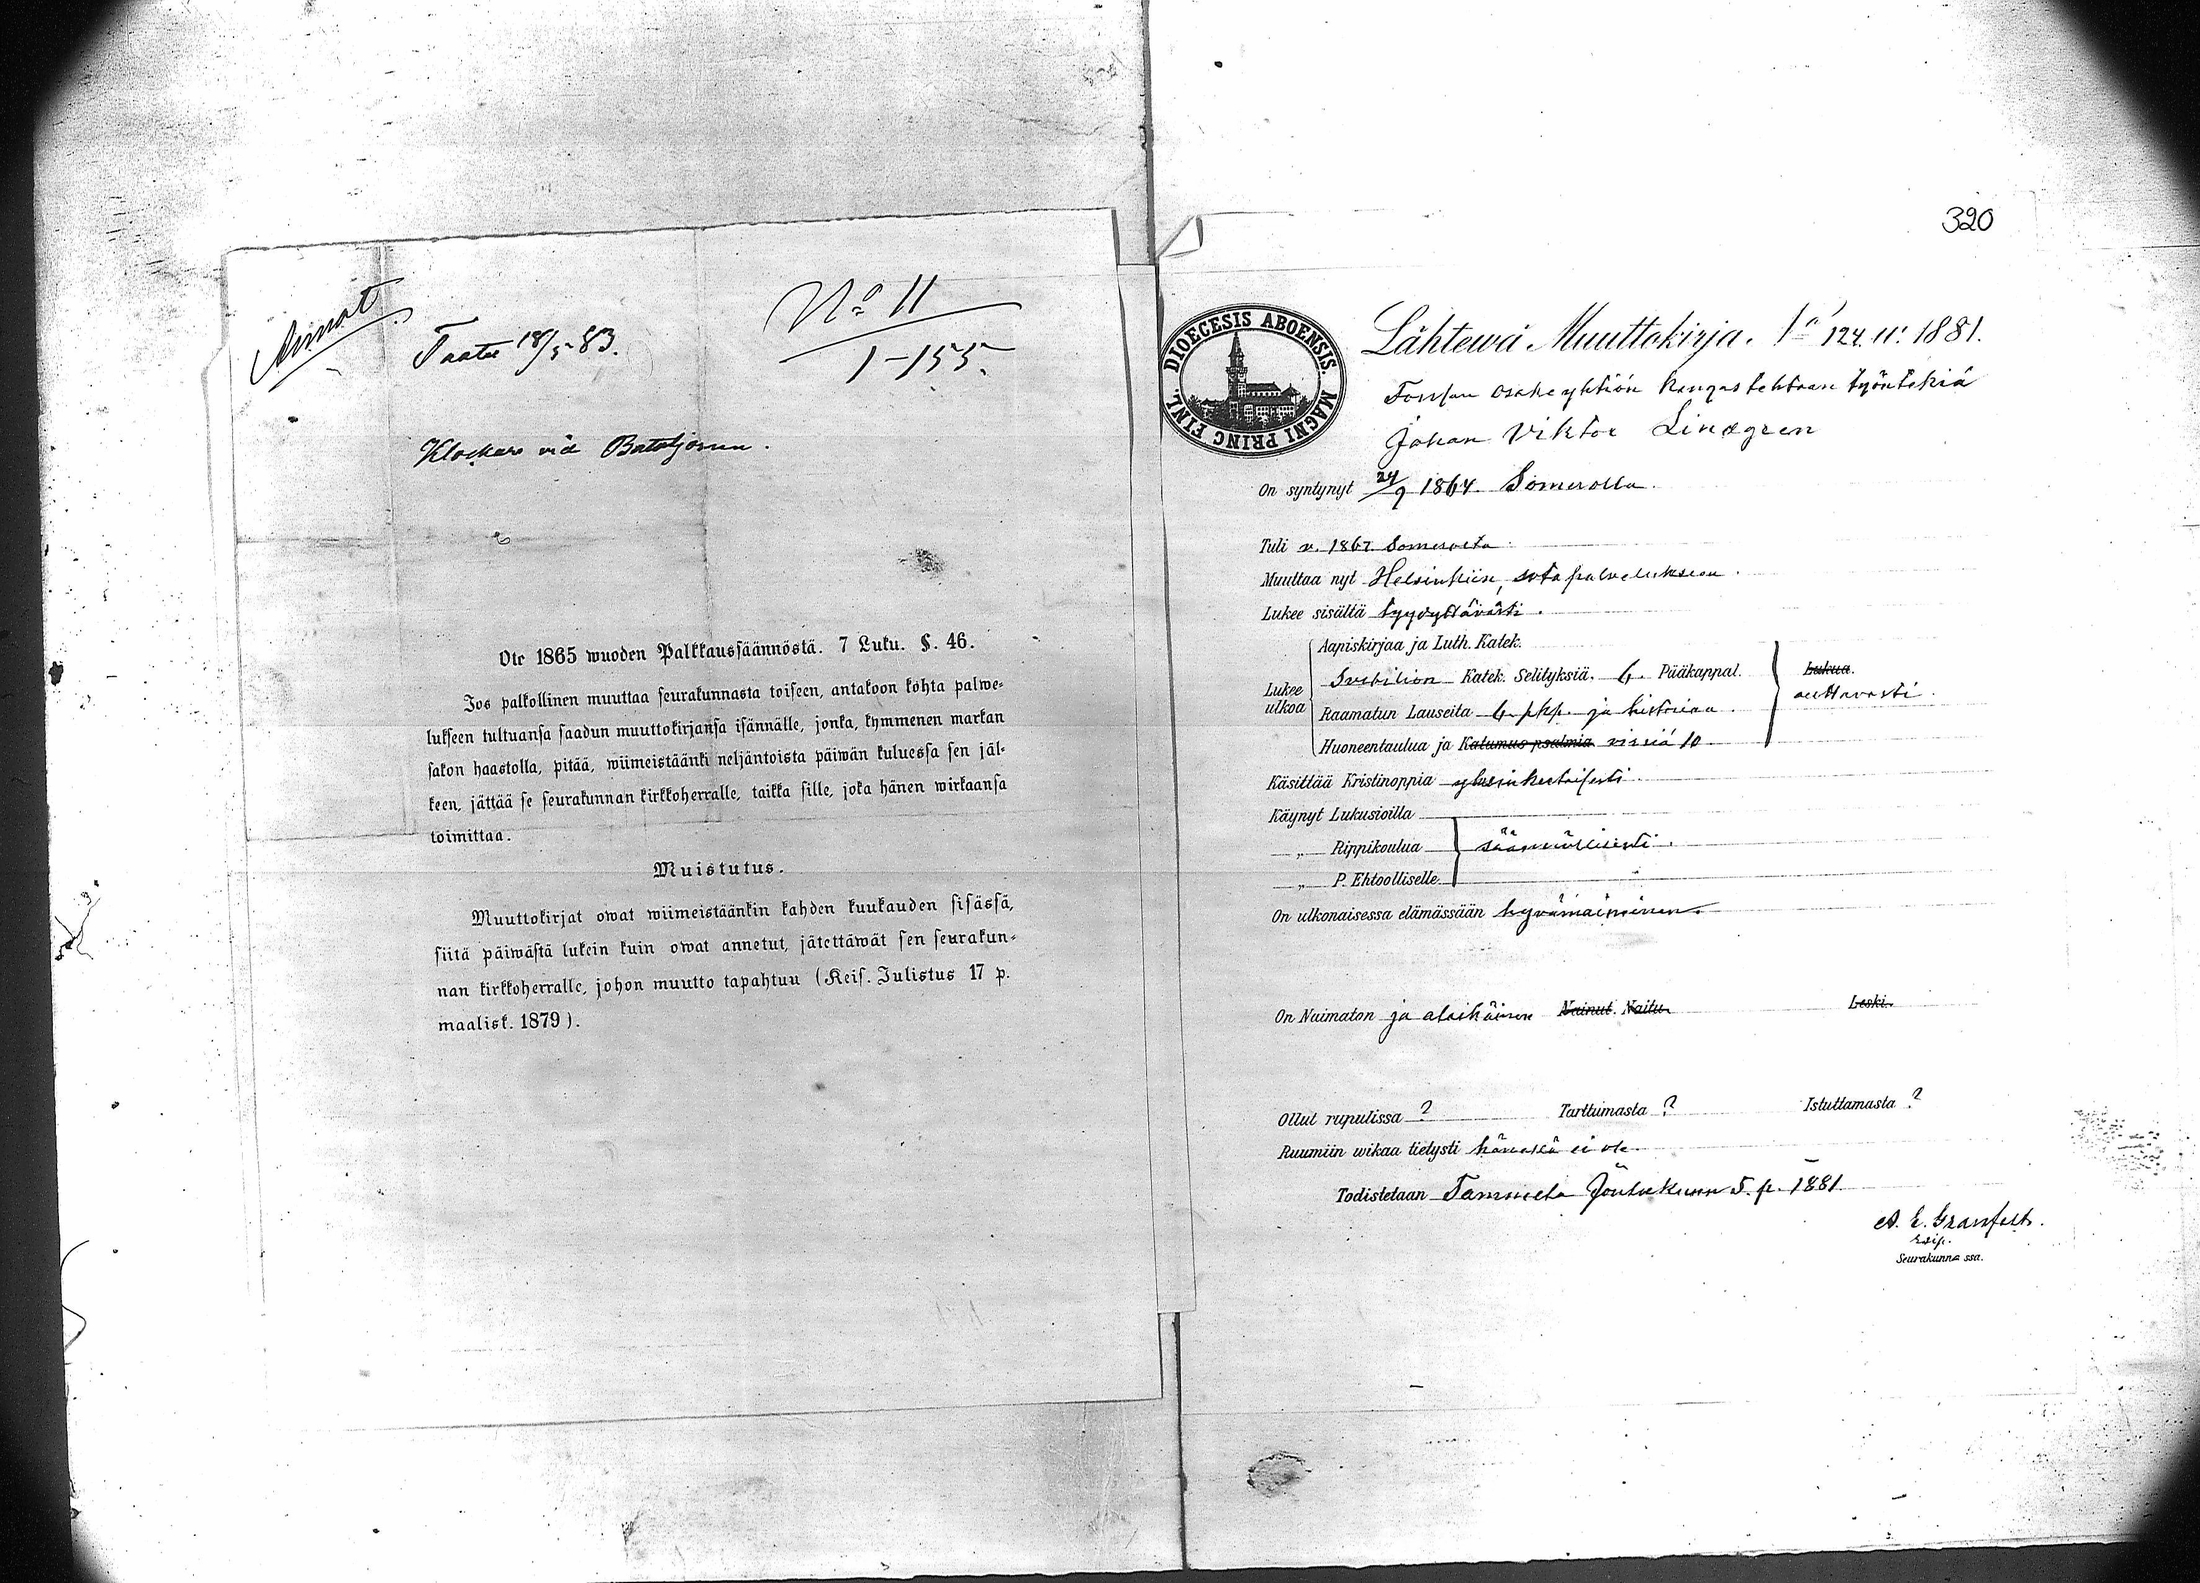 Taatu 18/5 83.
No 11
1-155.
Klockars vid Bataljonen.
Ote 1865 wuoden Palkkaussäännöstä. 7 Luku. §. 46.
Jos palkollinen muuttaa seurakunnasta toiseen, antakoon kohta palwe-
lukseen tultuansa saadun muuttokirjansa isännälle, jonka, kymmenen markan
sakon haastolla, pitää, wiimeistäänki neljäntoista päiwän kuluessa sen jäl-
keen, jättää se seurakunnan kirkkoherralle, taikka sille, joka hänen wirkaansa
toimittaa.
Muistutus.
Muuttokirjat owat wiimeistäänkin kahden kuukauden sisässä,
siitä päiwästä lukein kuin owat annetut, jätettäwät sen seurakun-
nan kirkkoherralle, johon muutto tapahtuu (Keis. Julistus 17 p.
maalisk. 1879).
320
DIOECESIS ABOENSIS. MAGNI PRINC FINL.
Lähtewä Muuttokirja. 124. 1881.
Forssan osakeyhtiön kangastehtaan työntekiä
Johan Viktor Lindgren
On syntynyt 24/9 1864. Somerolla.
Tuli v. 1867. Somerolta.
Muuttaa nyt Helsinkiin, sotapalvelukseen.
Lukee sisältä tyydyttävästi.
Lukee ulkoa
Aapiskirjaa ja Luth. Katek.
Svebilion Katek. Selityksiä. 6. Pääkappal.
Raamatun Lauseita 6 pkp. ja historiaa.
Huoneentaulua ja Katumus psalmia virsiä 10
Lukua.
auttavasti.
Käsittää Kristinoppia yksinkertaisesti.
Käynyt Lukusioilla
„ Rippikoulua säännöllisesti.
„ P. Ehtoolliselle
On ulkonaisessa elämässään hyvämaineinen.
On Naimaton ja alaikäinen Nainut. Naitu. Leski.
Ollut rupulissa ? Tarttumasta ? Istuttamasta ?
Ruumiin wikaa tietysti hänessä ei ole.
Todistetaan Tammela Joulukuun 5. p. 1881.
A. E. Granfelt.
Seurakunna ssa.